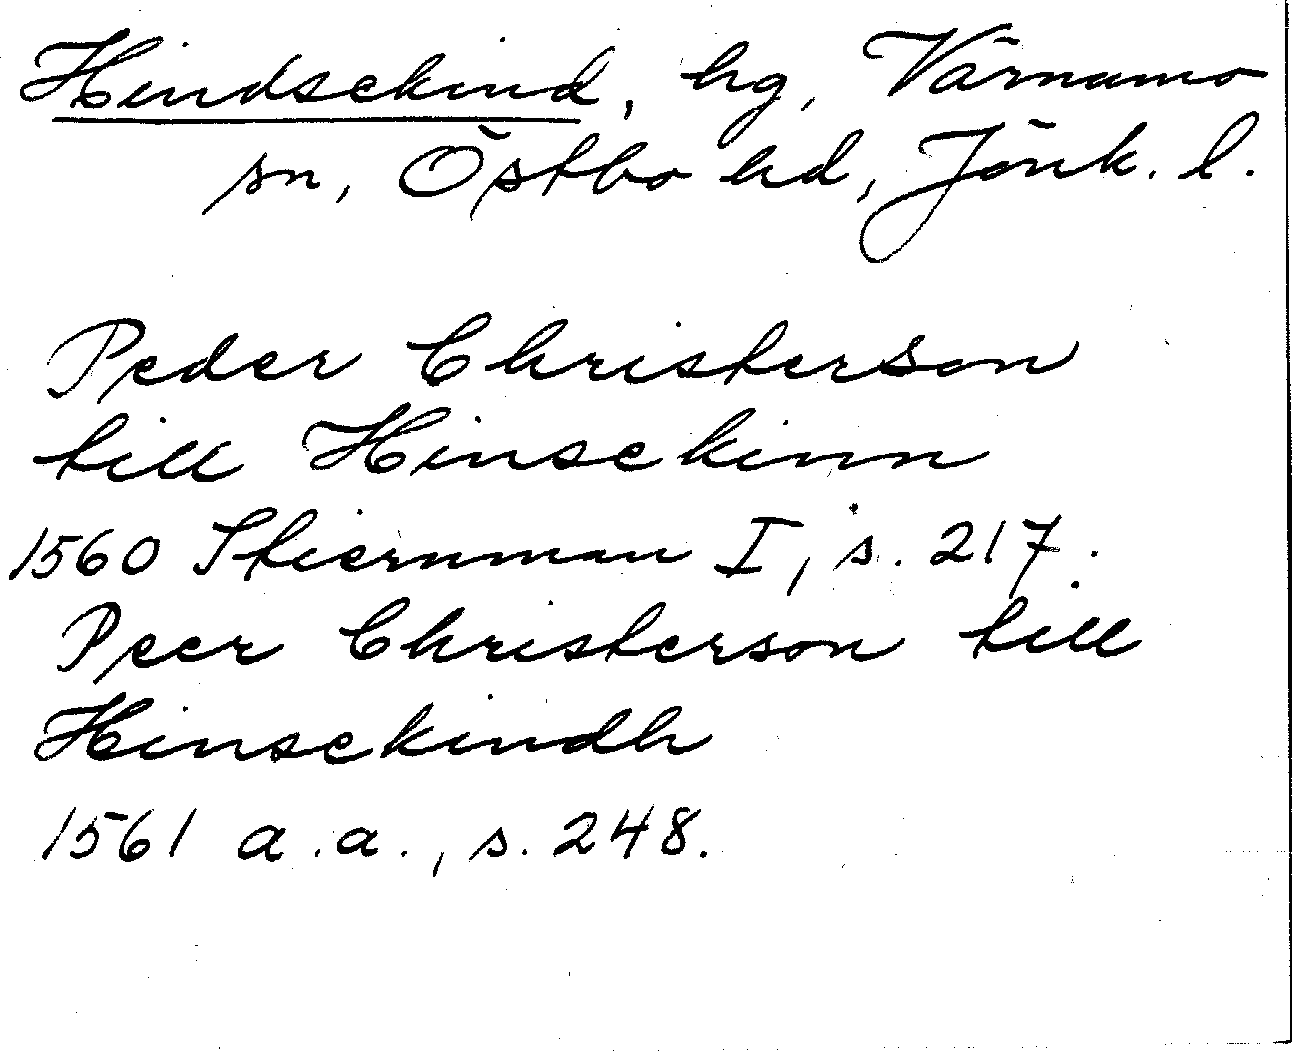 Hindsekind, hg, Värnamo
sn, Östbo hd, Jönk. l.
Peder Christerson
till Hinsekinn
1560 Stiernman I, s. 217.
Peer Christerson till
Hinsekindh
1561 a.a., s. 248.